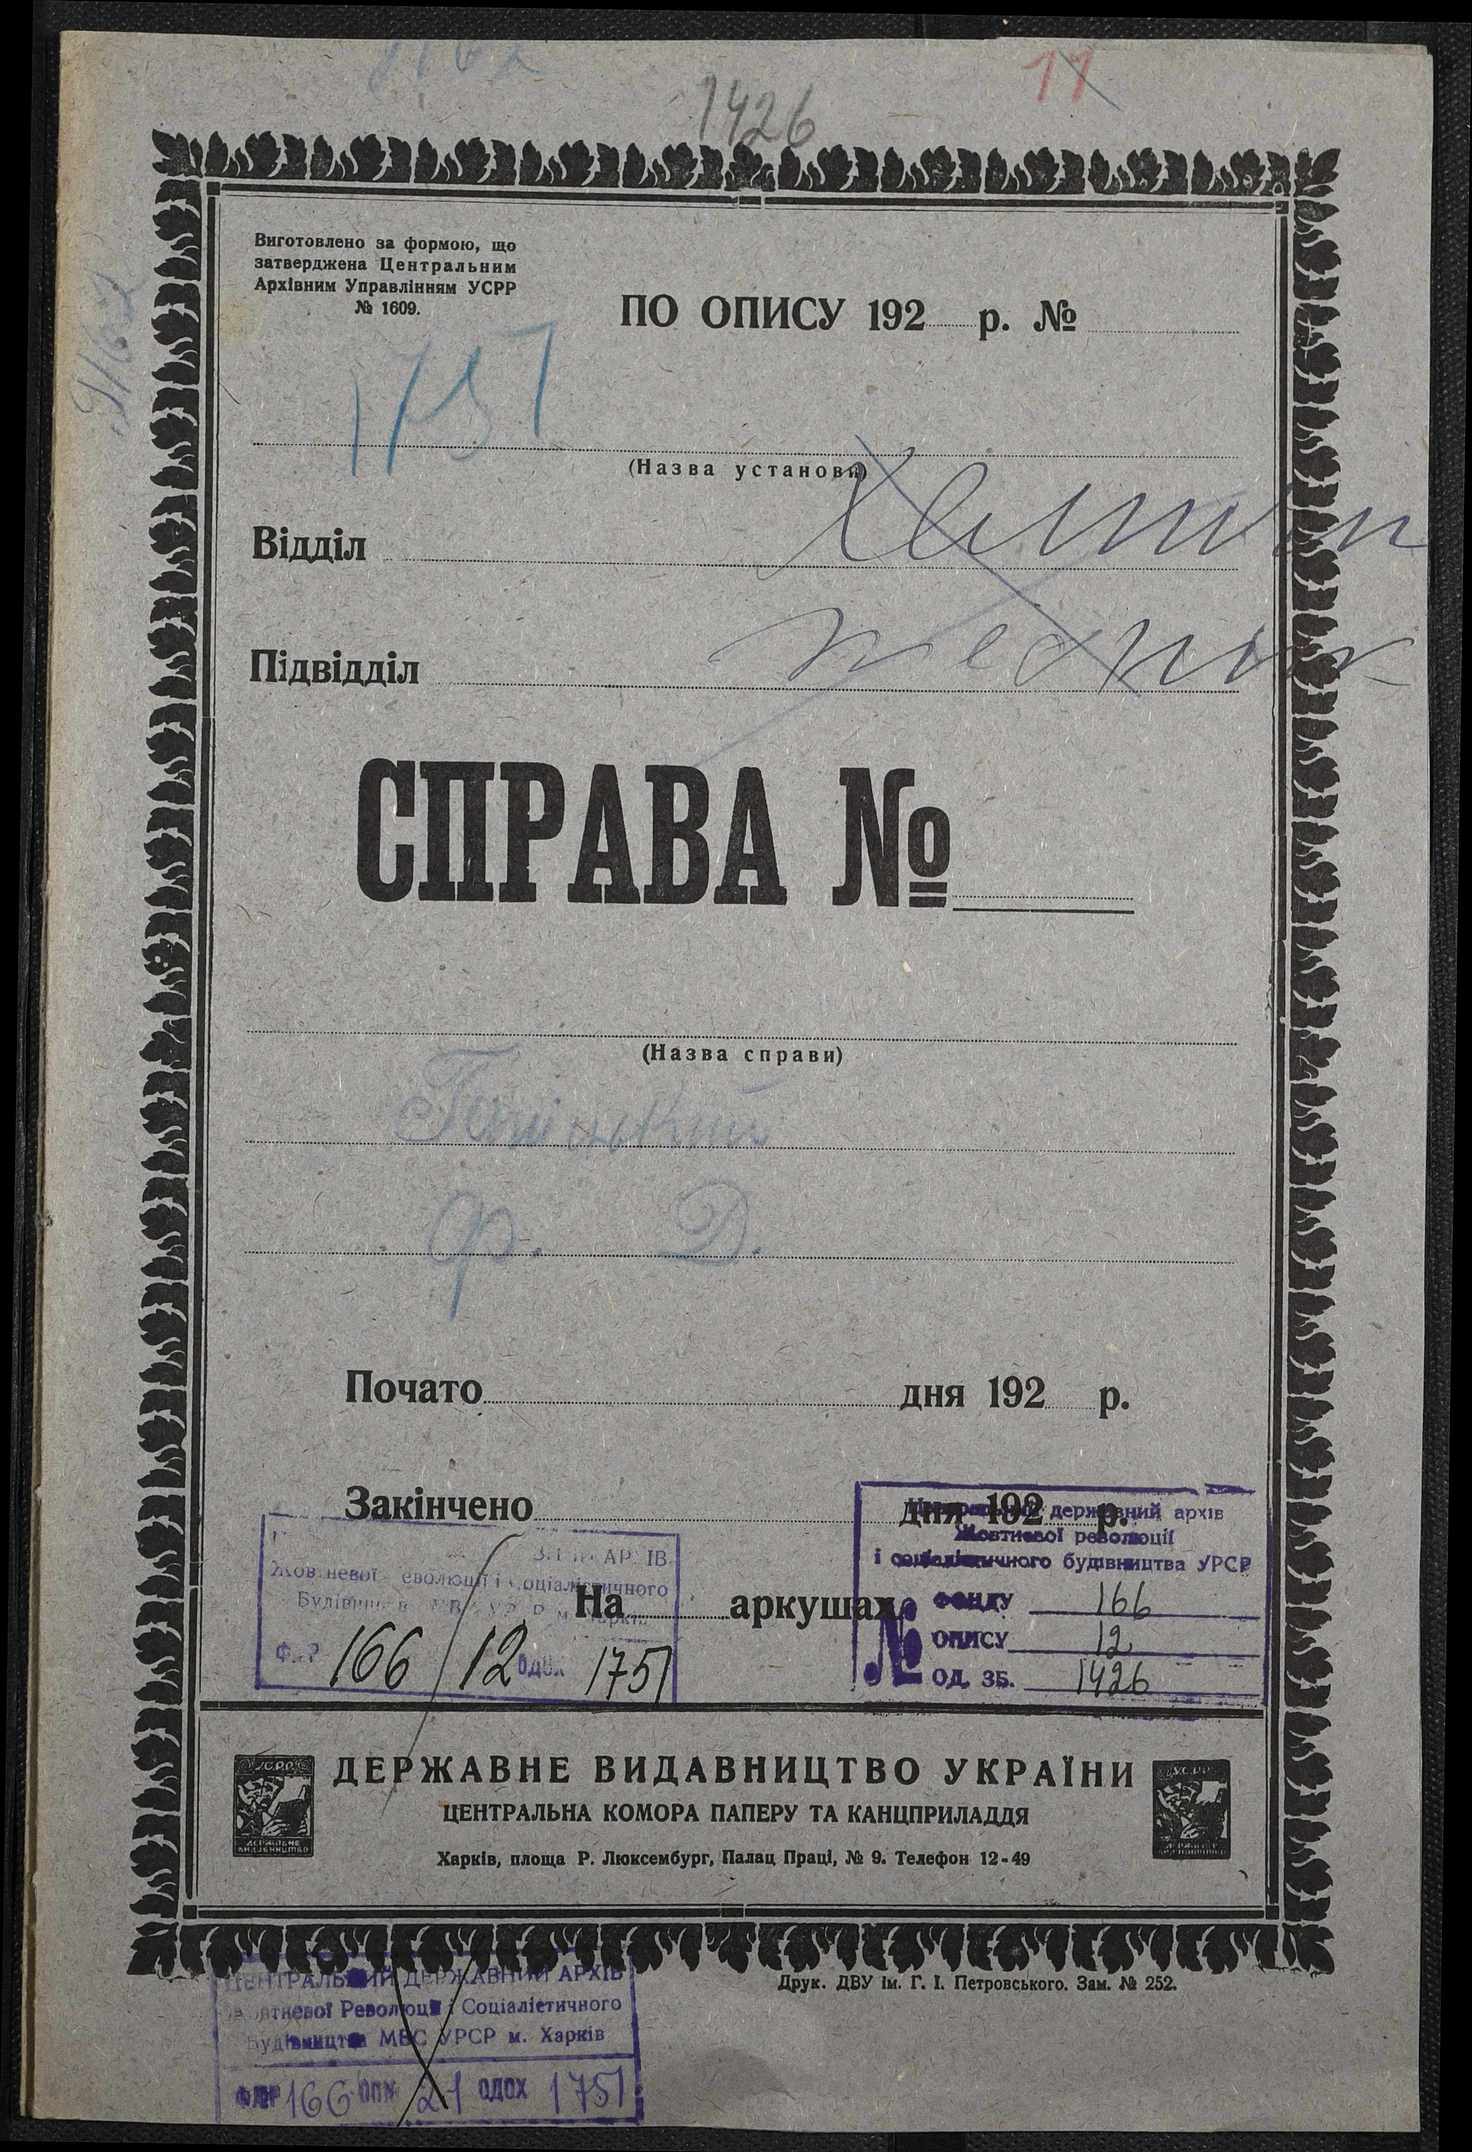 1426
11
Виготовлено за формою, що
затверджена Центральним
Архівним Управлінням УСРР
№ 1609.
ПО ОПИСУ 192 р. №
1751
(Назва установи)
Відділ
Підвідділ
СПРАВА №
(Назва справи)
Ф. Д.
Почато дня 192 р.
Закінчено дня 192 р.
На аркушах
Центральний державний архів
Жовтневої революції
і соціалістичного будівництва УРСР
№
ФОНДУ 166
ОПИСУ 12
ОД. ЗБ. 1426
АРХІВ
Жовтневої Революції і Соціалістичного
166 12 ОДОХ 1751
ДЕРЖАВНЕ ВИДАВНИЦТВО УКРАЇНИ
ЦЕНТРАЛЬНА КОМОРА ПАПЕРУ ТА КАНЦПРИЛАДДЯ
Харків, площа Р. Люксембург, Палац Праці, № 9. Телефон 12-49
Друк. ДВУ ім. Г. І. Петровського. Зам. № 252.
ЦЕНТРАЛЬНИЙ ДЕРЖАВНИЙ АРХІВ
Жовтневої Революції і Соціалістичного
Будівництва МВС УРСР м. Харків
166 21 ОДОХ 1751